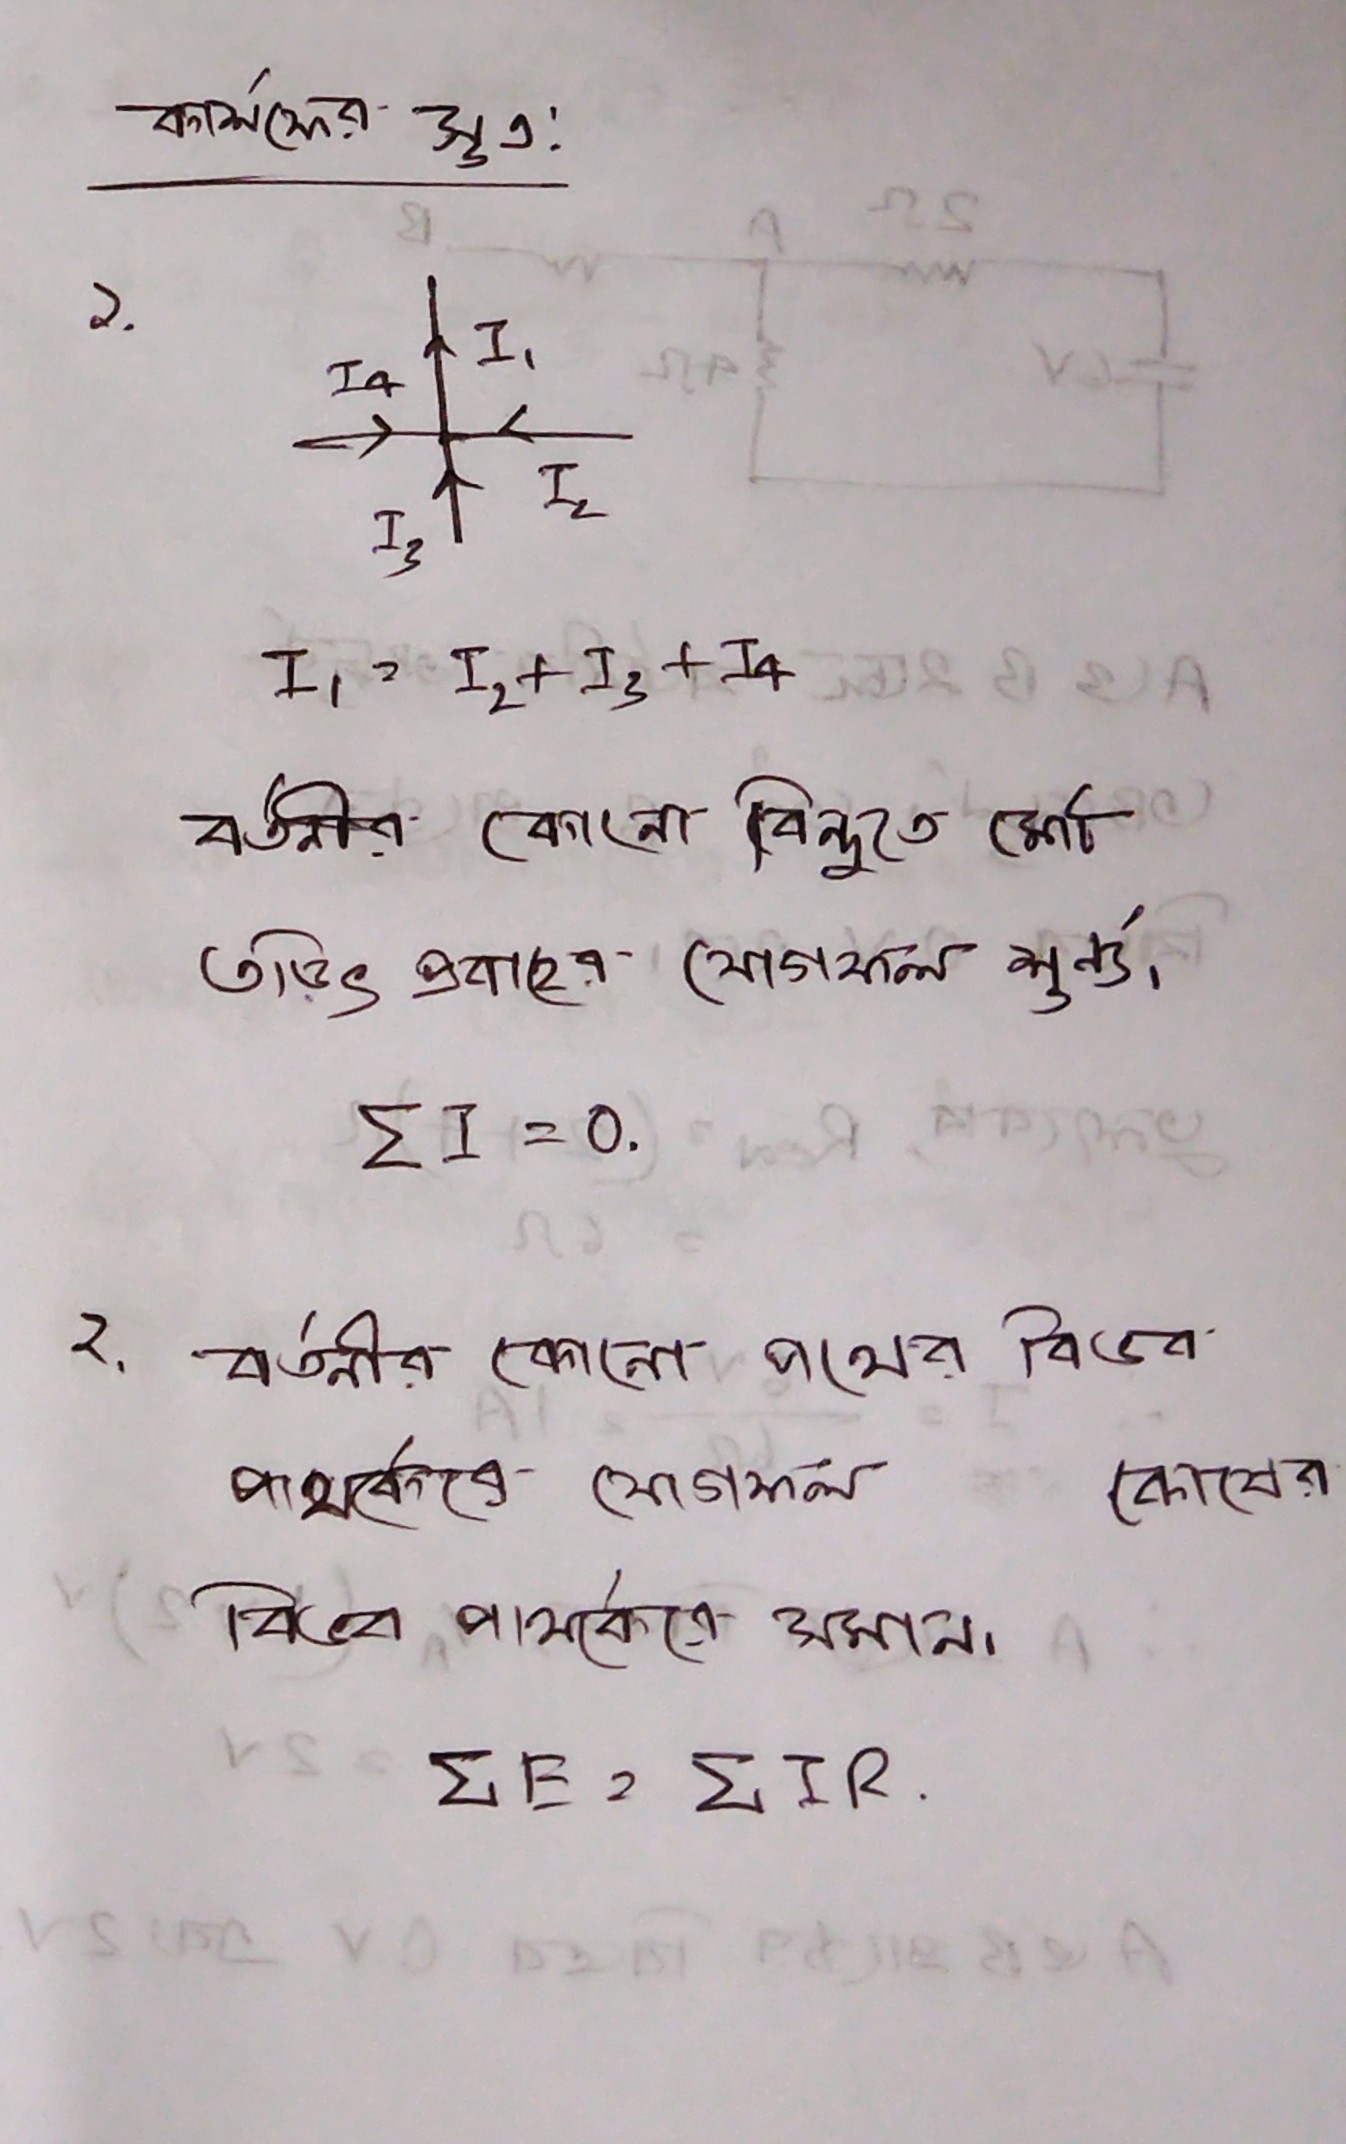 কার্শফের সূত্র:
১.
I₁
I4
I₂
I₃
I₁ = I₂ + I₃ + I4
বর্তনীর কোনো বিন্দুতে মোট
তড়িৎ প্রবাহের যোগফল শূন্য।
ΣI = 0.
২. বর্তনীর কোনো পথের বিভব
পার্থক্যের যোগফল কোষের
বিভব পার্থক্যের সমান।
ΣE = ΣIR.